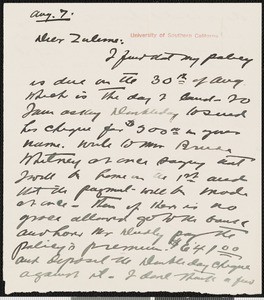 Aug. 7.
University of Southern California
Dear Zulime:
I find that my policy
is due on the 30th of Aug
which is the day I land - so
I am asking Doubleday to send
his cheque for $300.00 in your
name. Write to Mr Bruce
Whitney at once saying that
I will be home on the 1st and
that the payment will be made
at once - Then if there is no
grace allowed go to the bank
and have Mr pay the
policy's premium $641.00
and deposit the Doubleday cheque
against it - I dont think a few